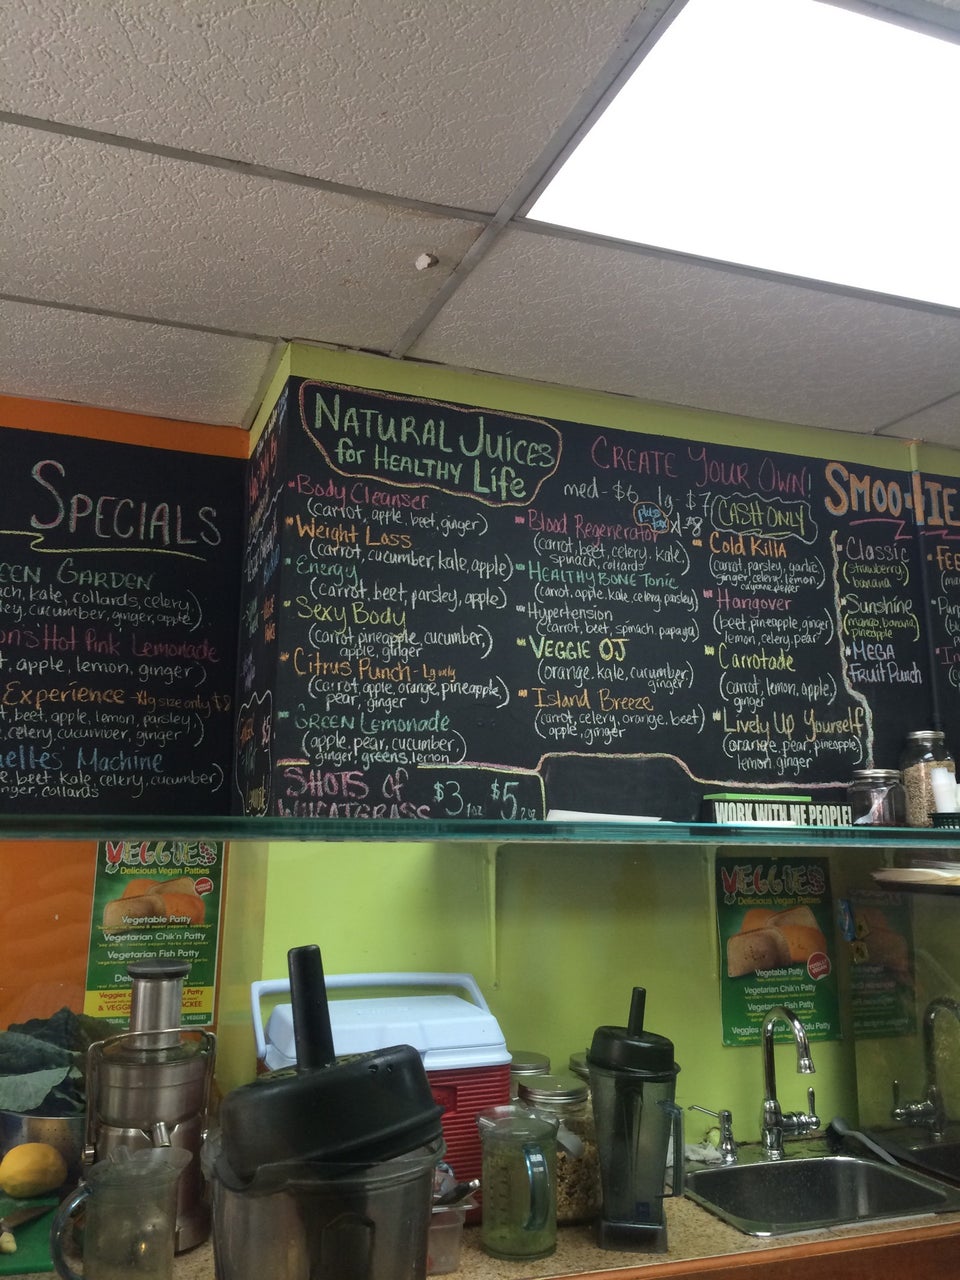 SPECIALS
EEN GARDEN
ach, kale, collards, celery
ley, cucumber, ginger, apple)
on's Hot Pink Lemonade
t, apple, lemon, ginger)
Experience - lg size only $8
t, beet, apple, lemon, parsley,
celery, cucumber, ginger)
elles' Machine
e, beet, kale, celery, cucumber)
nger, collards
NATURAL JUICES
for HEALTHY Life
Body Cleanser
(carrot, apple, beet, ginger)
Weight Loss
(carrot, cucumber, kale, apple)
Energy
(carrot, beet, parsley, apple)
Sexy Body
(carrot, pineapple, cucumber,
apple, ginger)
Citrus Punch - lg only
(carrot, apple, orange, pineapple,
pear, ginger)
GREEN LEMONADE
(apple, pear, cucumber,
ginger, greens, lemon
SHOTS of
WHEATGRASS $3 1oz $5 2oz
CREATE YOUR OWN!
med - $6 lg - $7
plus tax xl $8
CASH ONLY
Blood Regenerator
(carrot, beet, celery, kale,
spinach, collards)
HEALTHY BONE TONIC
(carrot, apple, kale, celery, parsley)
Hypertension
(carrot, beet, spinach, papaya)
VEGGIE OJ
(orange, kale, cucumber)
ginger
Island Breeze
(carrot, celery, orange, beet)
apple, ginger
Cold Killa
(carrot, parsley, garlic,
ginger, celery, lemon,
cayenne pepper
Hangover
(beet, pineapple, ginger
lemon, celery, pear)
Carrotade
(carrot, lemon, apple,
ginger
Lively Up Yourself
(orange, pear, pineapple,
lemon, ginger
SMOO IE
Classic
(strawberry)
banana
Sunshine
(mango, banana,
pineapple
MEGA
Fruit Punch
WORK WITH ME PEOPLE!
VEGGIES
Delicious Vegan Patties
Vegetable Patty
Vegetarian Chik'n Patty
Vegetarian Fish Patty
VEGGIES
Delicious Vegan Patties
Vegetable Patty
Vegetarian Chik'n Patty
Vegetarian Fish Patty